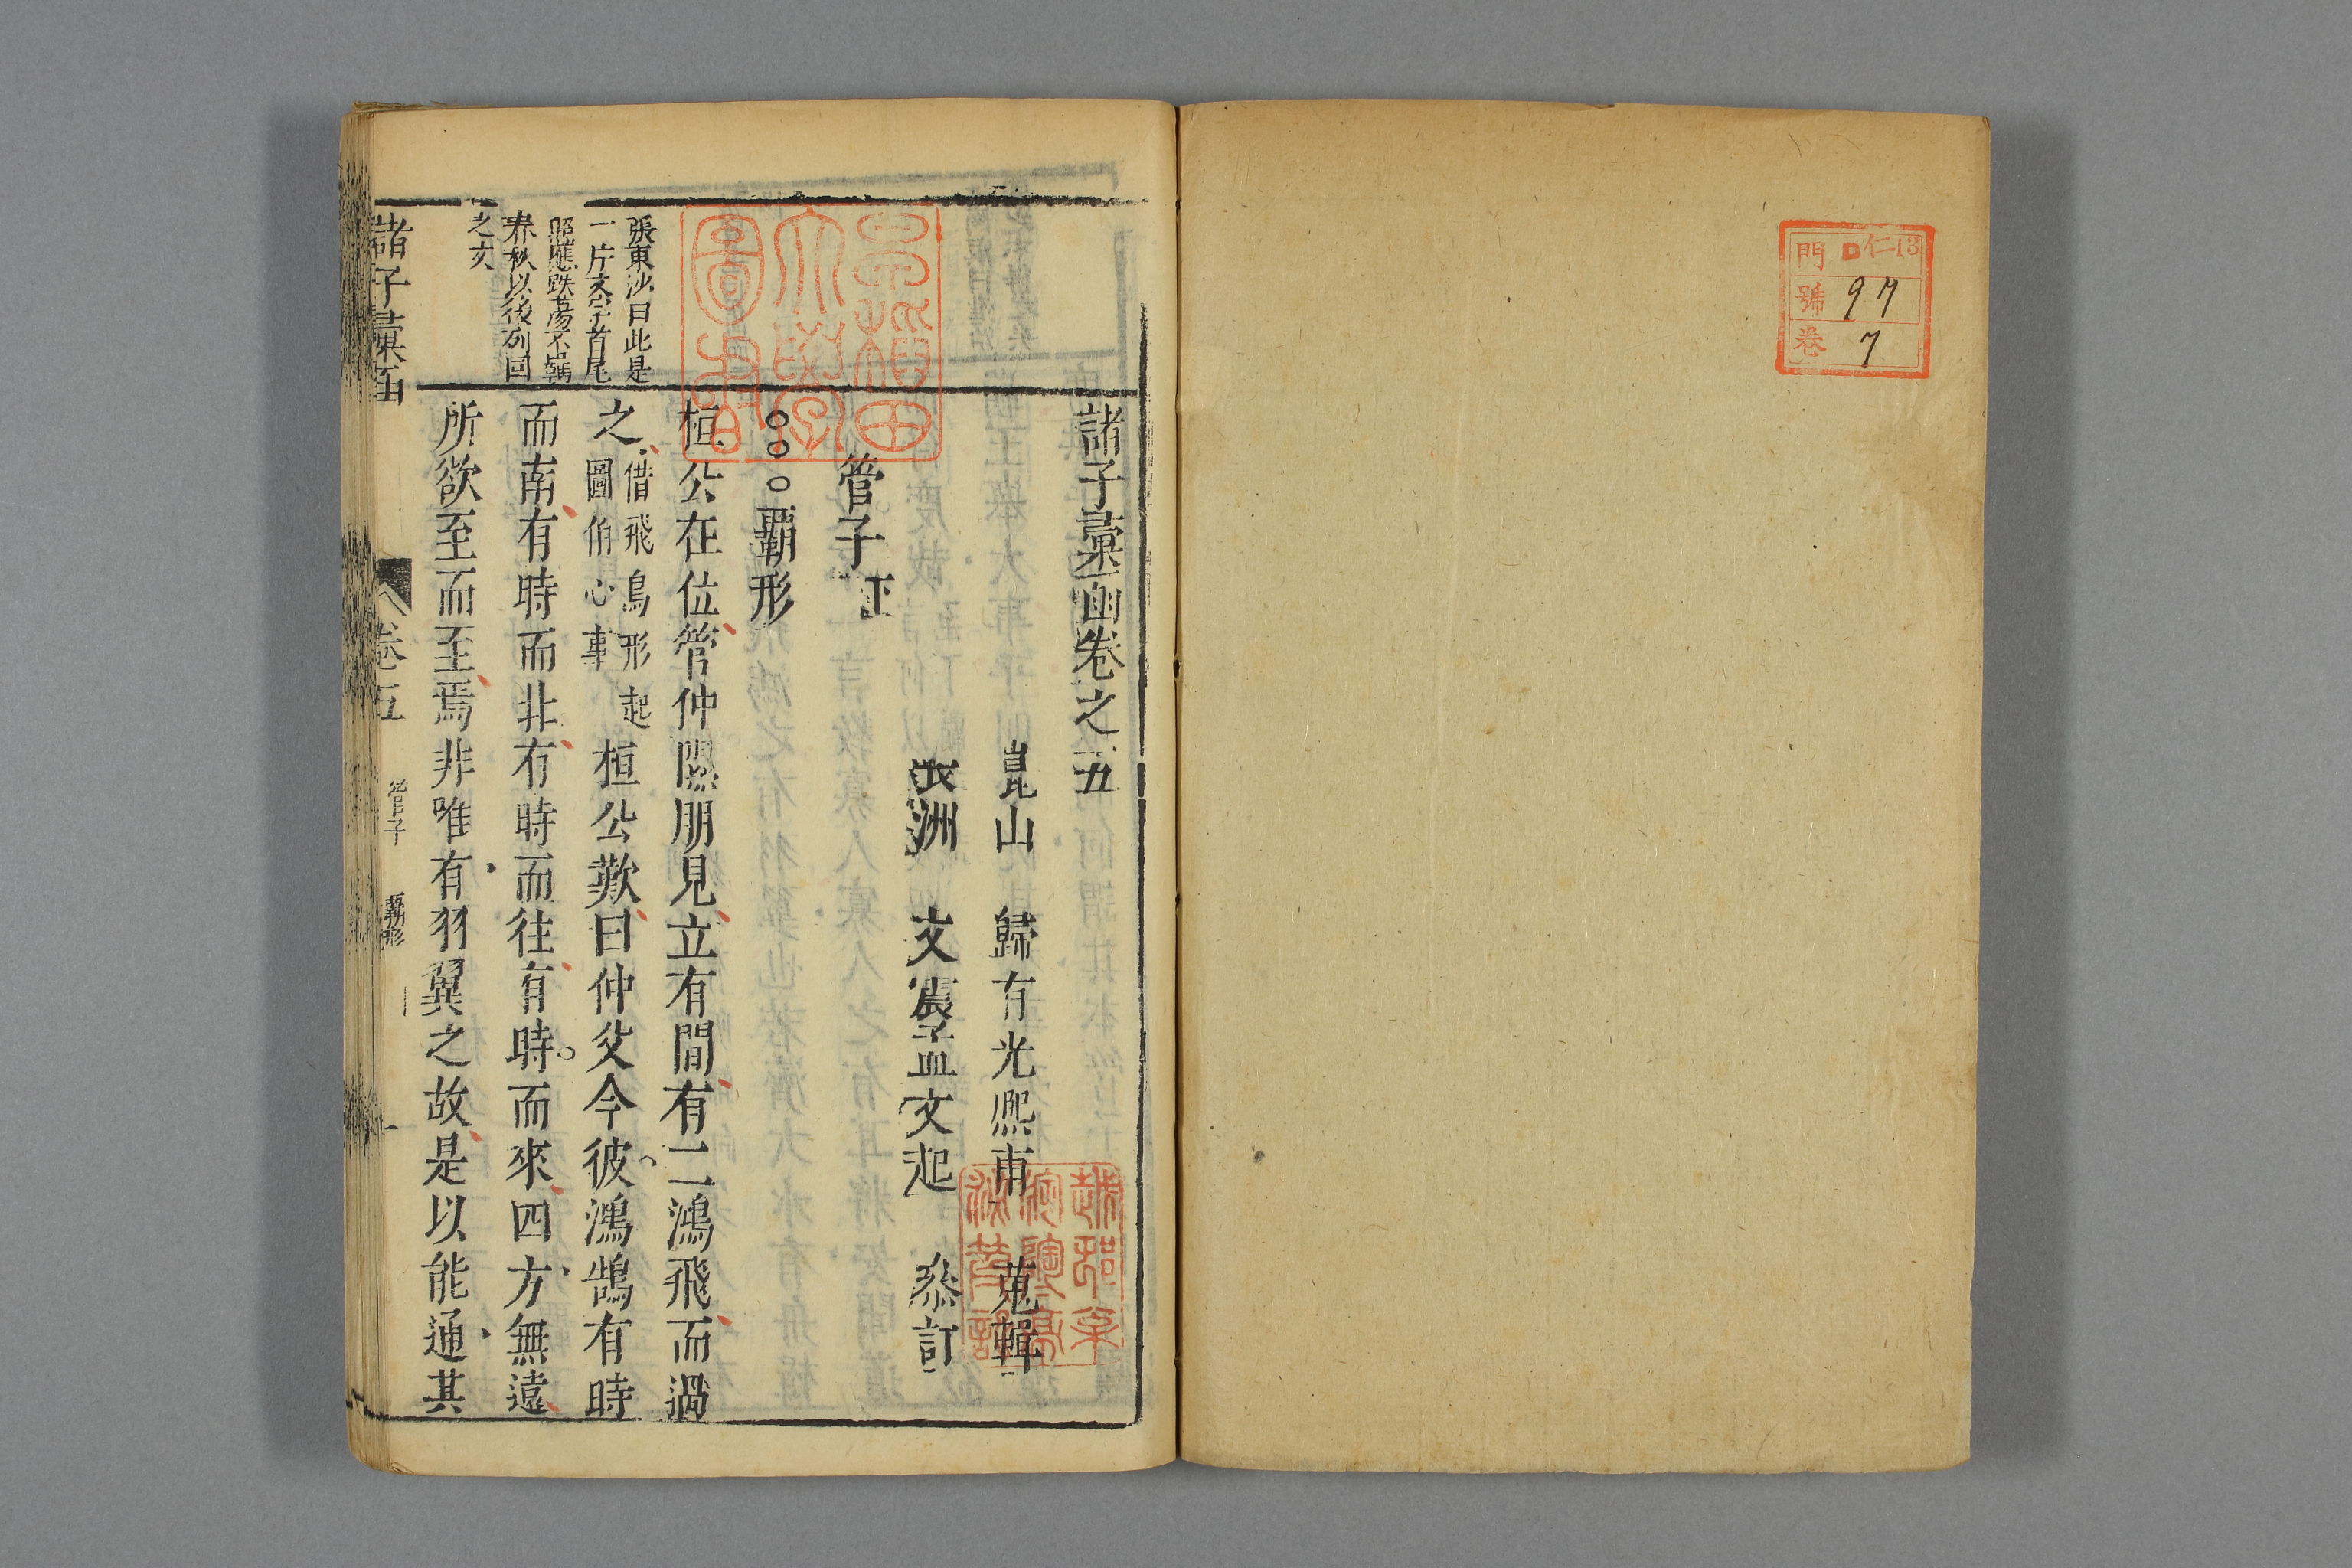 門 仁13
號 97
卷 7
諸子彚函卷之五
崑山 歸有光熙甫 蒐輯
長洲 文震孟文起 叅訂
管子
霸形
桓公在位管仲隰朋見立有間有二鴻飛而過
之借飛鳥形起圖伯心事桓公歎曰仲父今彼鴻鵠有時
而南有時而非有時而往有時而來四方無遠
所欲至而至焉非唯有羽翼之故是以能通其
張東沙曰此是
一片文字首尾
照應跌蕩不羈
春秋以後列囘
之文
早稻田
大學
圖書
諸子彚函
卷五
管子
霸形
一